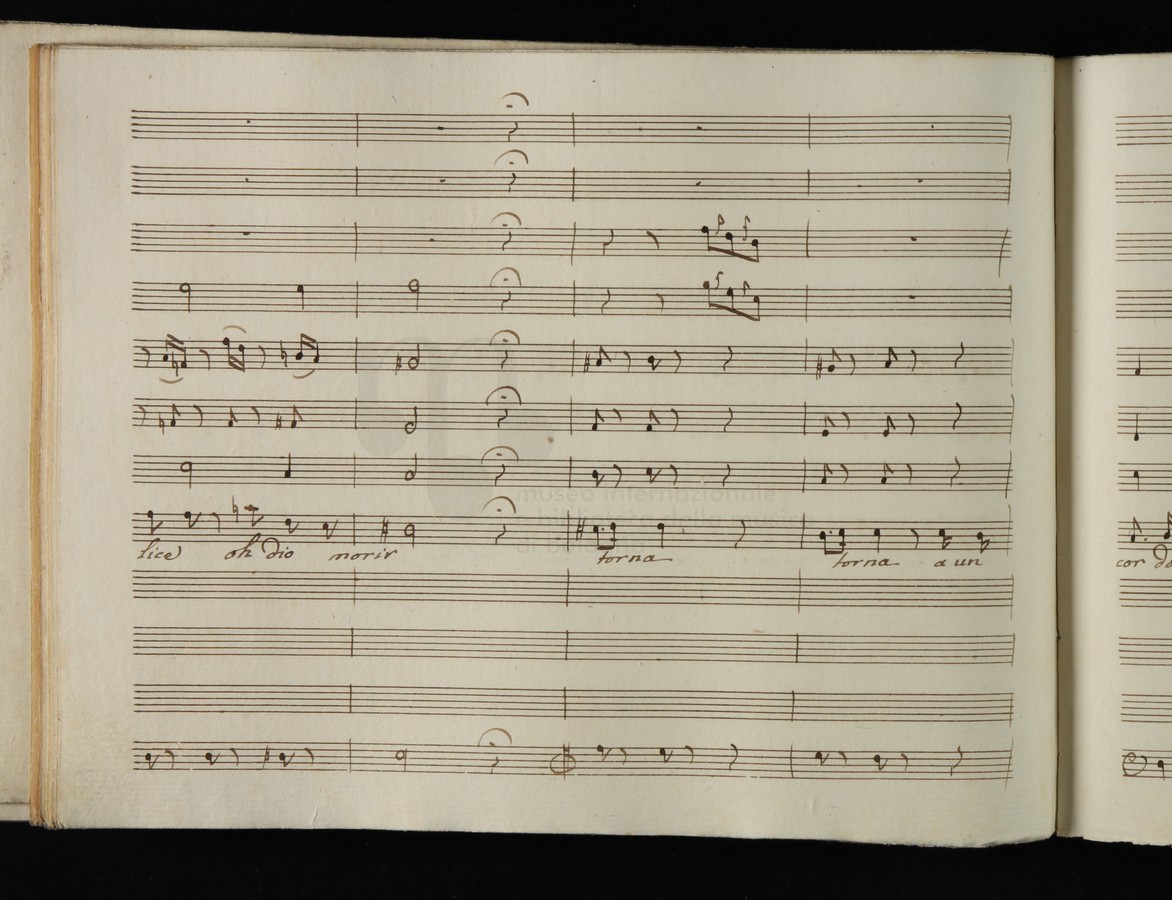 museo internazionale
e biblioteca della musica
di bologna
lice oh dio morir torna torna a un
cor